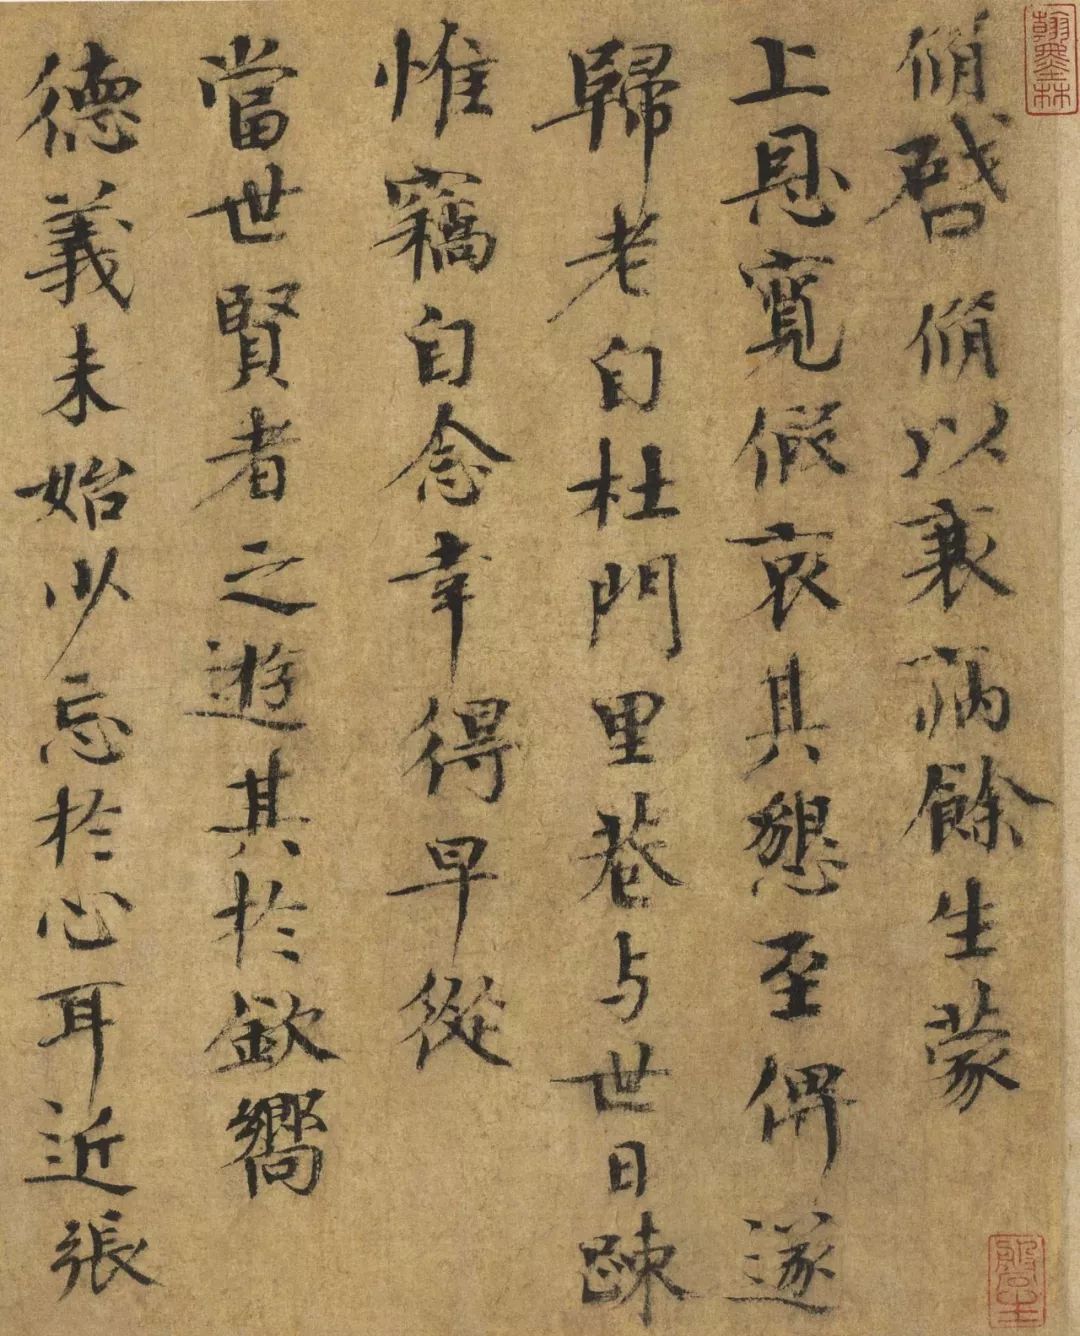 脩啓脩以衰病餘生蒙
上恩寬假哀其懇至俾遂
歸老自杜門里巷与世日疎
惟竊自念幸得早從
當世賢者之遊其於欽嚮
德義未始少忘於心耳近張
翰墨林